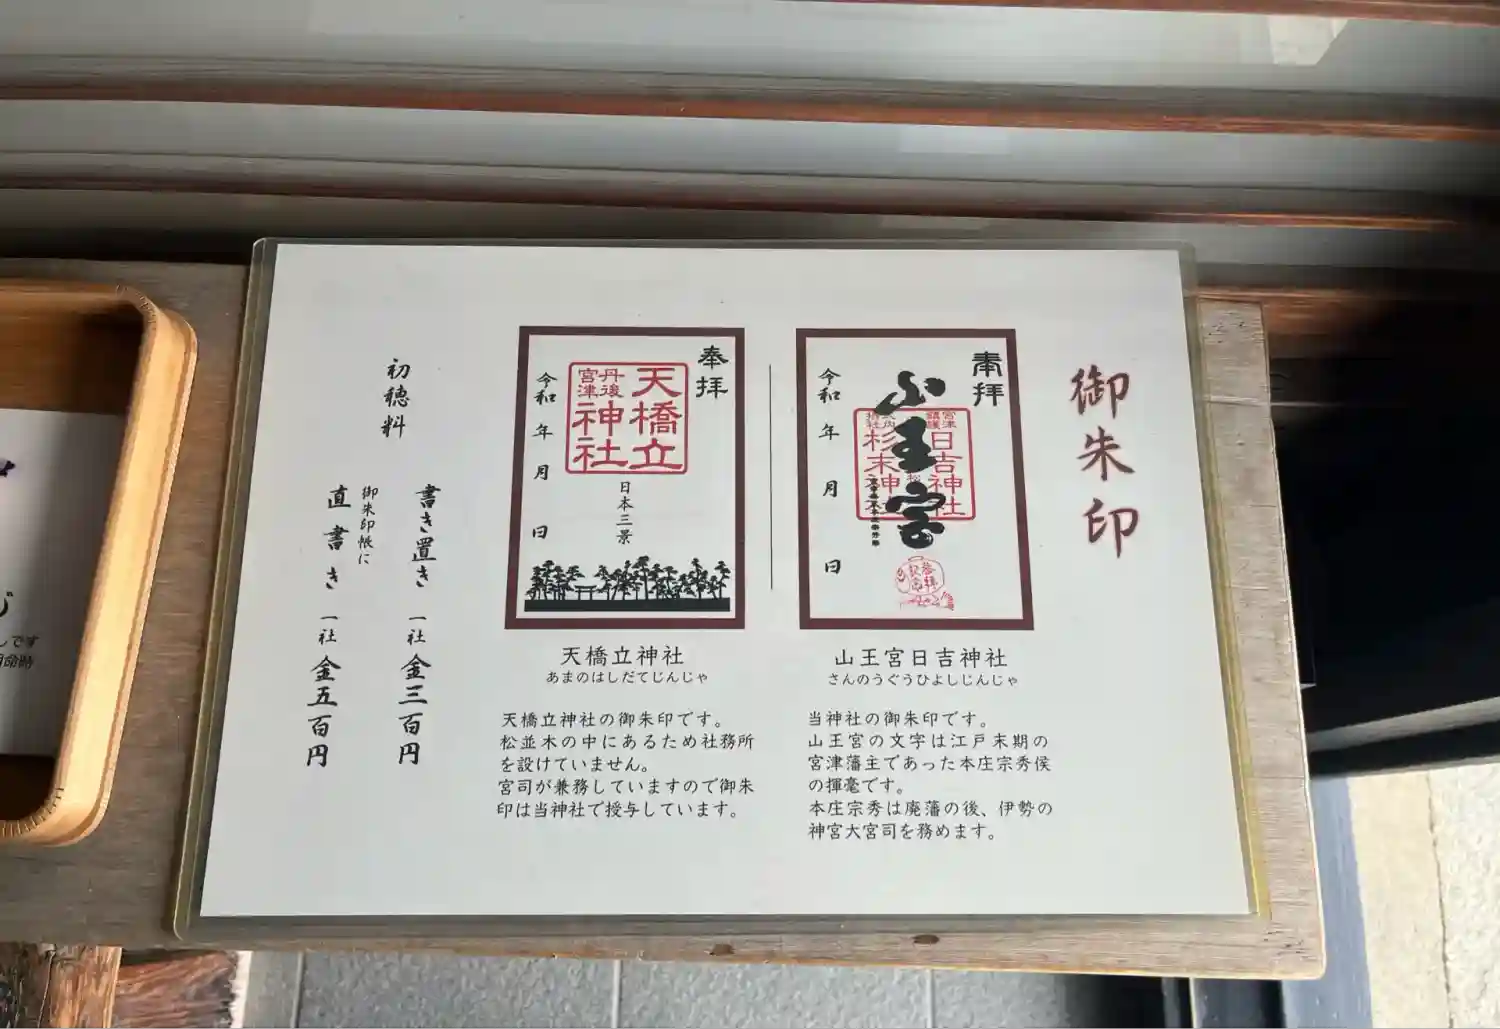 御朱印
奉拝
山王宮
宮津
鎮護
日吉神社
杉末神社
参拝
記念
令和 年 月 日
山王宮日吉神社
さんのうぐうひよしじんじゃ
当神社の御朱印です。
山王宮の文字は江戸末期の
宮津藩主であった本庄宗秀侯
の揮毫です。
本庄宗秀は廃藩の後、伊勢の
神宮大宮司を務めます。
奉拝
天橋立
丹後
宮津
神社
日本三景
令和 年 月 日
天橋立神社
あまのはしだてじんじゃ
天橋立神社の御朱印です。
松並木の中にあるため社務所
を設けていません。
宮司が兼務していますので御朱
印は当神社で授与しています。
初穂料
書き置き 一社 金三百円
御朱印帳に
直書き 一社 金五百円